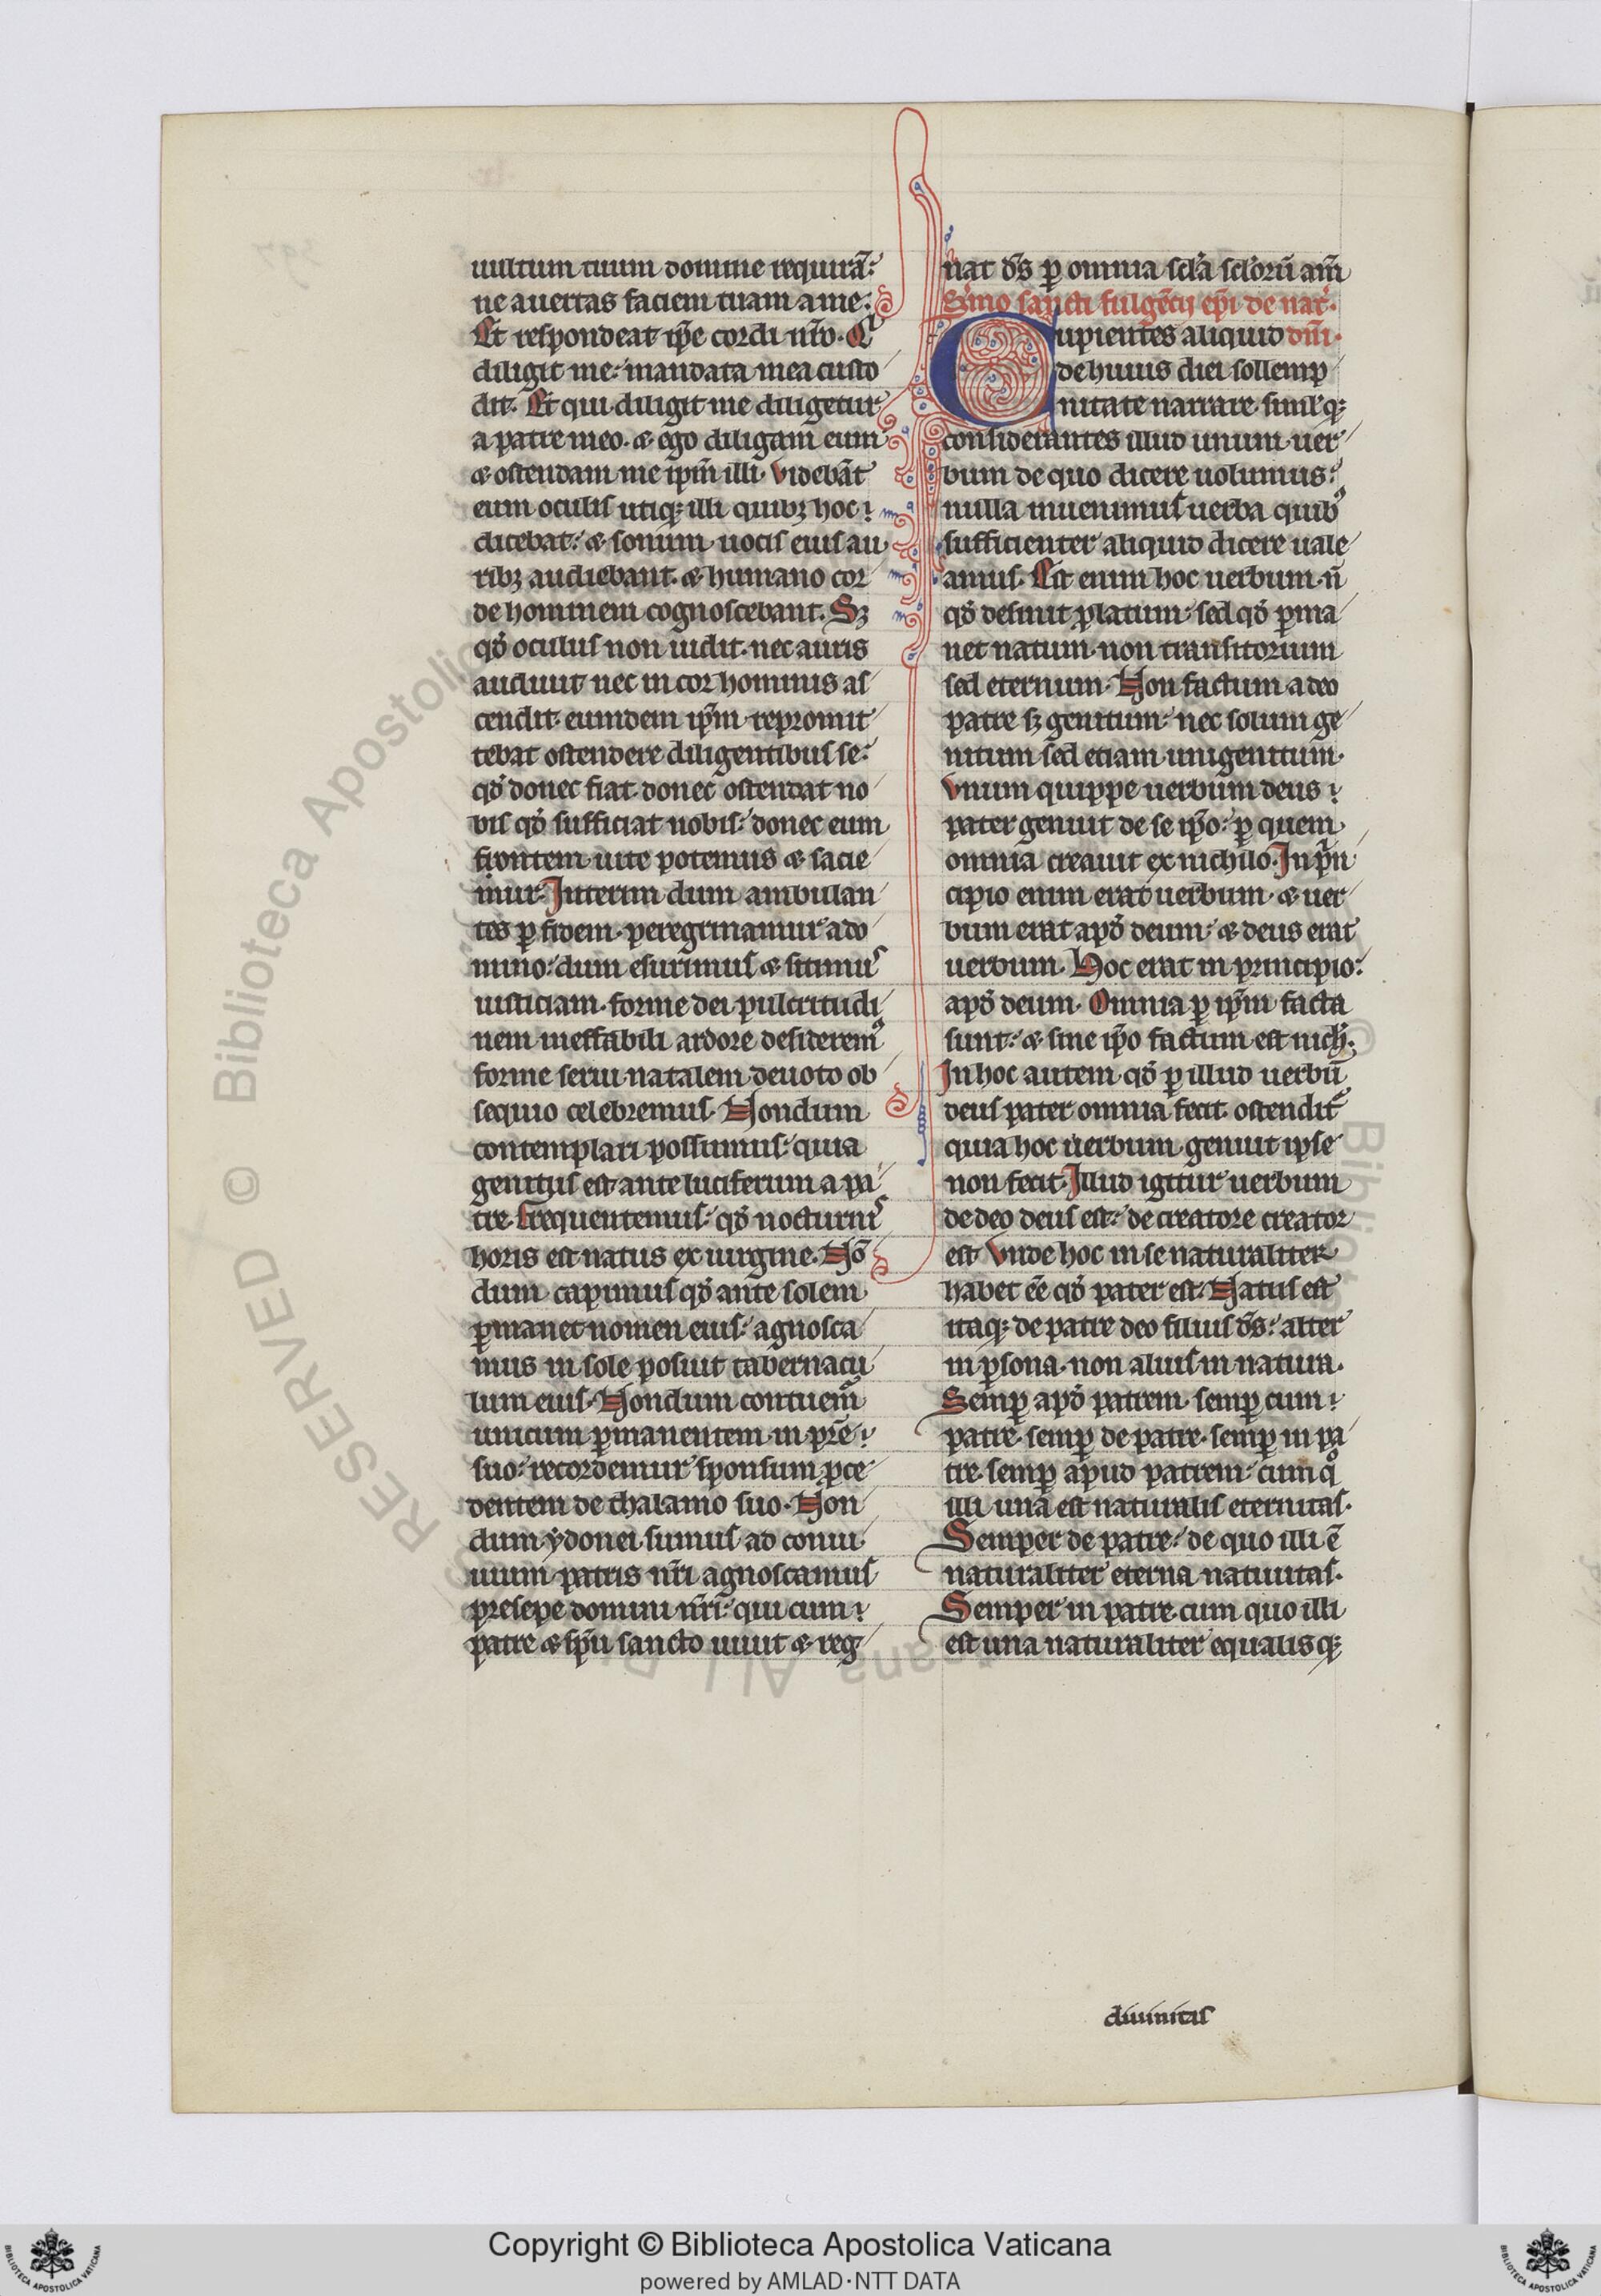 uultum tuum domine requirã:
ne auertas faciem tuam a me:
Et respondeat ip̃e cordi nr̃o. Qͥ
diligit me: mandata mea custo
dit. Et qui diligit me diligetur
a patre meo. & ego diligam eum
& ostendam me ipm̃ illi. Videbãt
eum oculis utiqꝫ illi quibꝫ hoc
dicebat: & sonum uocis eius au
ribꝫ audiebant. & humano cor
de hominem cognoscebant. Sꝫ
qð oculus non uidit. nec auris
audiuit nec in cor hominis as
cendit. eumdem ipm̃ repromit
tebat ostendere diligentibus se:
qð donec fiat. donec ostendat no
bis qð sufficiat nobis: donec eum
frontem uite potemus & sacie
mur. Interim dum ambulan
tes ꝑ fidem. peregrinamur a do
mino: dum esurimus & sitimus
iusticiam. forme dei pulcritudi
nem ineffabili ardore desideremꝰ
forme serui natalem deuoto ob
sequio celebremus. Nondum
contemplari possumus: quia
genitus est ante luciferum a pa
tre. frequentemus: qð nocturnis
horis est natus ex uirgine. Nõ
dum capimus qð ante solem
ꝑmanet nomen eius: agnosca
mus in sole posuit tabernacu
lum eius. Nondum contuem̃
unicum ꝑmanentem in pr̃e
suo: recordemur sponsum ꝓce
dentem de thalamo suo. Non
dum ydonei sumus ad conui
uium patris nr̃i agnoscamus
presepe domini nr̃i: qui cum
patre & sp̃u sancto uiuit & reg
nat ds̃ ꝑ omnia scl̃a scl̃orũ am̃
Sermo sancti fulgẽtii ep̃i de nat̃.
Cupientes aliquid dñi.
de huius diei sollemp
nitate narrare. simulqꝫ
considerantes illud unum uer
bum de quo dicere uolumus:
nulla inuenimus uerba quibꝰ
sufficienter aliquid dicere uale
amus. Est enim hoc uerbum ñ
qð desinit ꝓlatum: sed qð ꝑma
net natum. non transitorium
sed eternum. Non factum a deo
patre sꝫ genitum: nec solum ge
nitum sed etiam unigenitum.
Vnum quippe uerbum deus
pater genuit de se ip̃o: ꝑ quem
omnia creauit ex nichilo. In pͥn
cipio enim erat uerbum. & uer
bum erat apð deum: & deus erat
uerbum. Hoc erat in principio:
apð deum. Omnia ꝑ ipm̃ facta
sunt: & sine ip̃o factum est nich̃.
In hoc autem qð ꝑ illud uerbũ
deus pater omnia fecit. ostendit̃
quia hoc uerbum genuit ipse
non fecit. Illud igitur uerbum
de deo deus est: de creatore creator
est. Vnde hoc in se naturaliter
habet ẽe qð pater est. Natus est
itaqꝫ de patre deo filius ds̃: alter
in ꝑsona. non alius in natura.
Semꝑ apð patrem. semꝑ cum
patre. semꝑ de patre. semꝑ in pa
tre. semꝑ apud patrem: cum qͦ
illi una est naturalis eternitas.
Semper de patre: de quo illi ẽ
naturaliter eterna natiuitas.
Semper in patre. cum quo illi
est una naturaliter equalisqꝫ
diuinitas
Copyright © Biblioteca Apostolica Vaticana
powered by AMLAD·NTT DATA